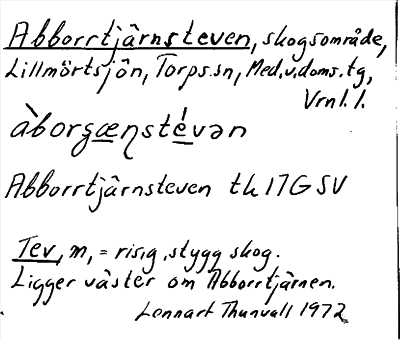 Abborrtjärnsteven, skogsområde,
Lillmörtsjön, Torps sn, Med.v.doms.tg,
Vrnl. l.
àborgænstévan
Abborrtjärnsteven tk 17G SV
Tev, m, = risig, stygg skog.
Ligger väster om Abborrtjärnen.
Lennart Thunvall 1972